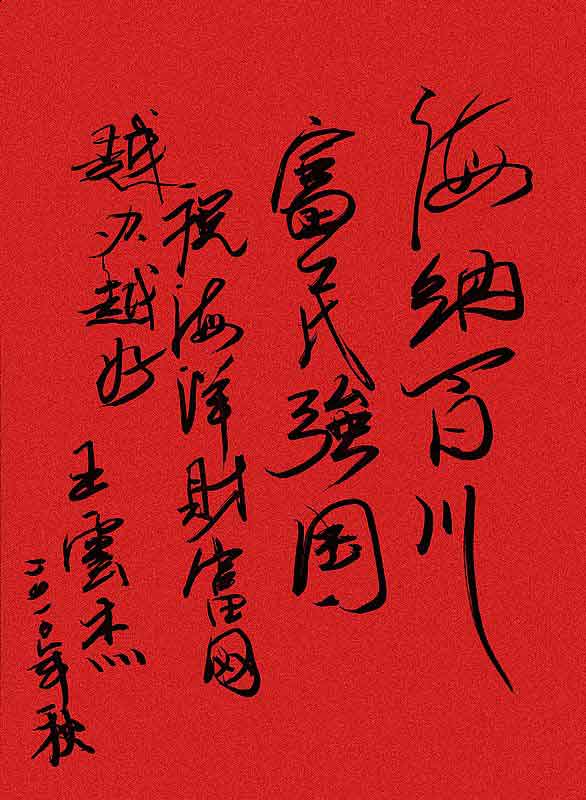 海納百川
富民強国
祝海洋財富网
越办越好
王雲杰
二〇一〇年秋